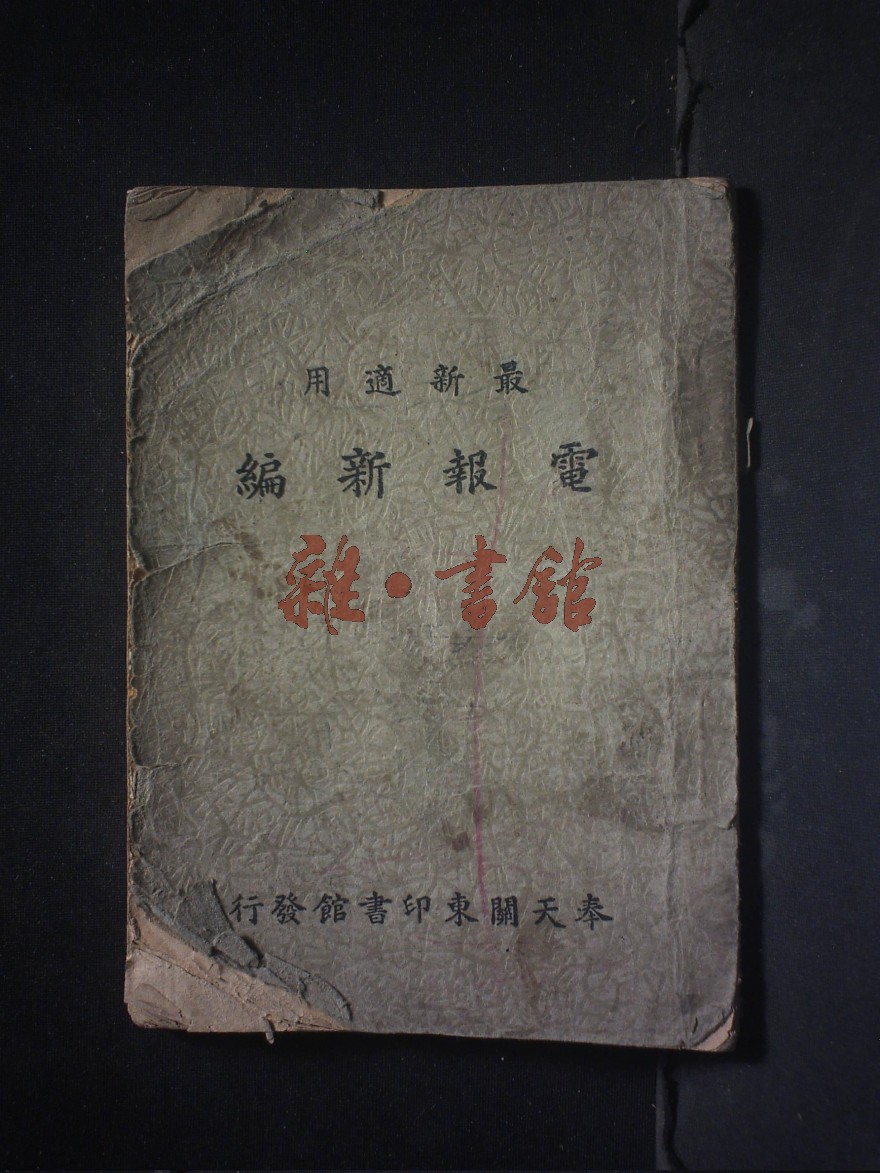 最新適用
電報新編
雜·書館
奉天關東印書館發行